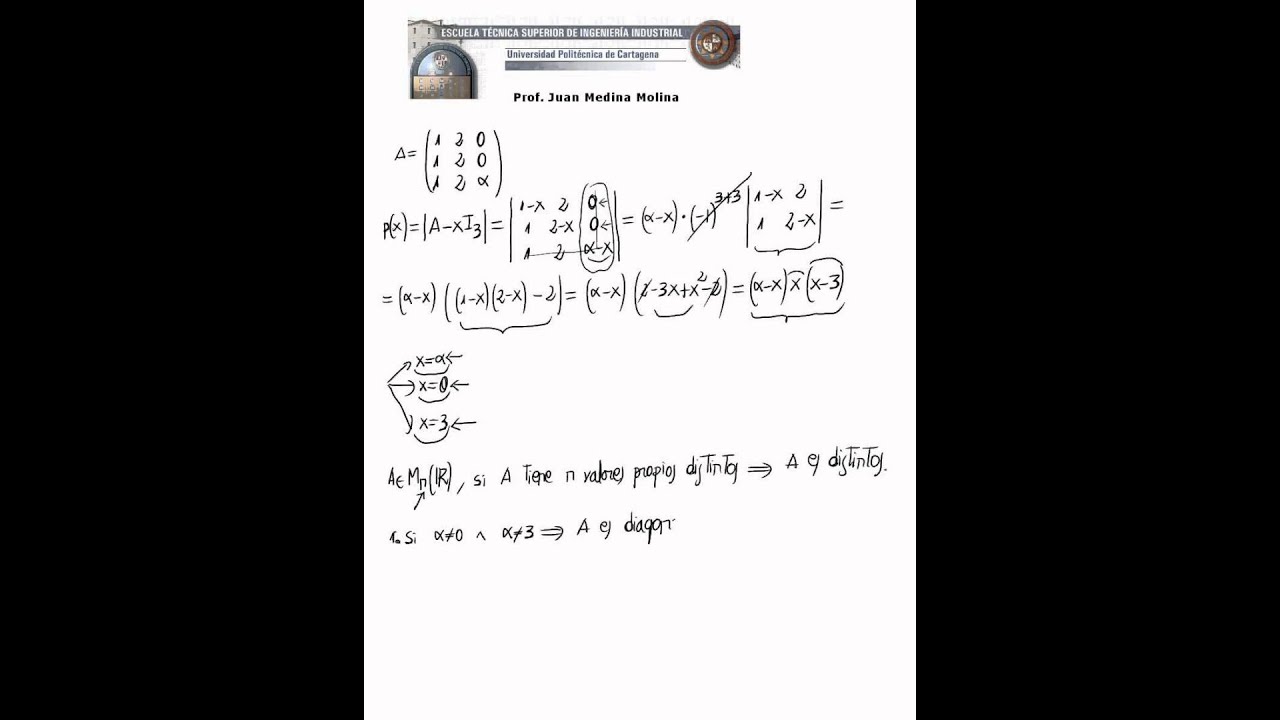 ESCUELA TÉCNICA SUPERIOR DE INGENIERÍA INDUSTRIAL
Universidad Politécnica de Cartagena
Prof. Juan Medina Molina
A= (1 2 0
1 2 0
1 2 α)
p(x)=|A-xI₃|= |1-x 2 0←
1 2-x 0←
1 2 α-x| = (α-x)·(-1)³⁺³ |1-x 2
1 2-x| =
= (α-x) ((1-x)(2-x)-2)= (α-x) (2-3x+x²-2)= (α-x) x (x-3)
x=α←
x=0←
x=3←
A∈Mₙ(IR), si A tiene n valores propios distintos ⇒ A es distintos.
1. Si α≠0 ∧ α≠3 ⇒ A es diagon